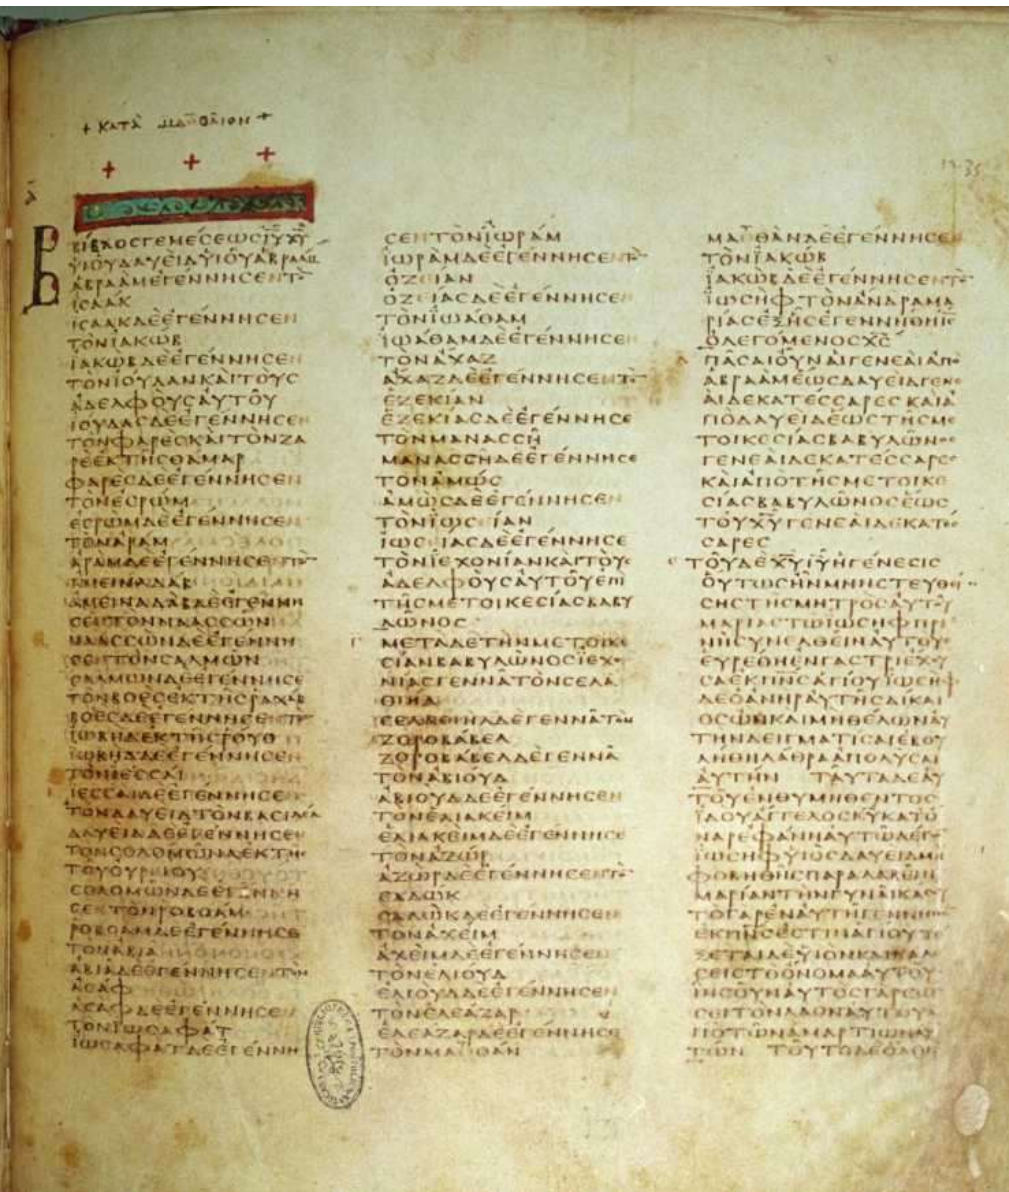 + ΚΑΤᾺ ΜΑΘΘΑῖΟΝ +
Α
ΒΊΒΛΟΣΓΕΝΕΣΕΩΣΙΥΧΥ
ΥΙΟΥΔΑΥΕΙΔΥΙΟΥΑΒΡΑΑΜ
ΑΒΡΑΑΜΕΓΕΝΝΗΣΕΝΤΟ
ΙΣΑΑΚ
ΙΣΑΑΚΔΕΕΓΕΝΝΗΣΕΝ
ΤΟΝΙΑΚΩΒ
ΙΑΚΩΒΔΕΕΓΕΝΝΗΣΕΝ
ΤΟΝΙΟΥΔΑΝΚΑΙΤΟΥΣ
ΑΔΕΛΦΟΥΣΑΥΤΟΥ
ΙΟΥΔΑΣΔΕΕΓΕΝΝΗΣΕΝ
ΤΟΝΦΑΡΕΣΚΑΙΤΟΝΖΑ
ΡΕΕΚΤΗΣΘΑΜΑΡ
ΦΑΡΕΣΔΕΕΓΕΝΝΗΣΕΝ
ΤΟΝΕΣΡΩΜ
ΕΣΡΩΜΔΕΕΓΕΝΝΗΣΕΝ
ΤΟΝΑΡΑΜ
ΑΡΑΜΔΕΕΓΕΝΝΗΣΕΝΤΟ
ΑΜΕΙΝΑΔΑΒ
ΑΜΕΙΝΑΔΑΒΔΕΕΓΕΝΝΗ
ΣΕΝΤΟΝΝΑΑΣΣΩΝ
ΝΑΑΣΣΩΝΔΕΕΓΕΝΝΗ
ΣΕΝΤΟΝΣΑΛΜΩΝ
ΣΑΛΜΩΝΔΕΕΓΕΝΝΗΣΕ
ΤΟΝΒΟΕΣΕΚΤΗΣΡΑΧΑΒ
ΒΟΕΣΔΕΕΓΕΝΝΗΣΕΝΤΟ
ΙΩΒΗΔΕΚΤΗΣΡΟΥΘ
ΙΩΒΗΔΔΕΕΓΕΝΝΗΣΕΝ
ΤΟΝΙΕΣΣΑΙ
ΙΕΣΣΑΙΔΕΕΓΕΝΝΗΣΕΝ
ΤΟΝΔΑΥΕΙΔΤΟΝΒΑΣΙΛΕΑ
ΔΑΥΕΙΔΔΕΕΓΕΝΝΗΣΕΝ
ΤΟΝΣΟΛΟΜΩΝΑΕΚΤΗΣ
ΤΟΥΟΥΡΕΙΟΥ
ΣΟΛΟΜΩΝΔΕΕΓΕΝΝΗ
ΣΕΝΤΟΝΡΟΒΟΑΜ
ΡΟΒΟΑΜΔΕΕΓΕΝΝΗΣΕ
ΤΟΝΑΒΙΑ
ΑΒΙΑΔΕΕΓΕΝΝΗΣΕΝΤΟΝ
ΑΣΑΦ
ΑΣΑΦΔΕΕΓΕΝΝΗΣΕΝ
ΤΟΝΙΩΣΑΦΑΤ
ΙΩΣΑΦΑΤΔΕΕΓΕΝΝΗ
ΣΕΝΤΟΝΙΩΡΑΜ
ΙΩΡΑΜΔΕΕΓΕΝΝΗΣΕΝΤΟ
ΟΖΕΙΑΝ
ΟΖΕΙΑΣΔΕΕΓΕΝΝΗΣΕΝ
ΤΟΝΙΩΑΘΑΜ
ΙΩΑΘΑΜΔΕΕΓΕΝΝΗΣΕΝ
ΤΟΝΑΧΑΖ
ΑΧΑΖΔΕΕΓΕΝΝΗΣΕΝΤΟ
ΕΖΕΚΙΑΝ
ΕΖΕΚΙΑΣΔΕΕΓΕΝΝΗΣΕ
ΤΟΝΜΑΝΑΣΣΗ
ΜΑΝΑΣΣΗΔΕΕΓΕΝΝΗΣΕ
ΤΟΝΑΜΩΣ
ΑΜΩΣΔΕΕΓΕΝΝΗΣΕΝ
ΤΟΝΙΩΣΕΙΑΝ
ΙΩΣΕΙΑΣΔΕΕΓΕΝΝΗΣΕ
ΤΟΝΙΕΧΟΝΙΑΝΚΑΙΤΟΥΣ
ΑΔΕΛΦΟΥΣΑΥΤΟΥΕΠΙ
ΤΗΣΜΕΤΟΙΚΕΣΙΑΣΒΑΒΥ
ΛΩΝΟΣ
ΜΕΤΑΔΕΤΗΝΜΕΤΟΙΚΕ
ΣΙΑΝΒΑΒΥΛΩΝΟΣΙΕΧΟ
ΝΙΑΣΓΕΝΝΑΤΟΝΣΕΛΑ
ΘΙΗΛ
ΣΕΛΑΘΙΗΛΔΕΓΕΝΝΑΤΟΝ
ΖΟΡΟΒΑΒΕΛ
ΖΟΡΟΒΑΒΕΛΔΕΓΕΝΝΑ
ΤΟΝΑΒΙΟΥΔ
ΑΒΙΟΥΔΔΕΕΓΕΝΝΗΣΕΝ
ΤΟΝΕΛΙΑΚΕΙΜ
ΕΛΙΑΚΕΙΜΔΕΕΓΕΝΝΗΣΕ
ΤΟΝΑΖΩΡ
ΑΖΩΡΔΕΕΓΕΝΝΗΣΕΝΤΟ
ΣΑΔΩΚ
ΣΑΔΩΚΔΕΕΓΕΝΝΗΣΕΝ
ΤΟΝΑΧΕΙΜ
ΑΧΕΙΜΔΕΕΓΕΝΝΗΣΕΝ
ΤΟΝΕΛΙΟΥΔ
ΕΛΙΟΥΔΔΕΕΓΕΝΝΗΣΕΝ
ΤΟΝΕΛΕΑΖΑΡ
ΕΛΕΑΖΑΡΔΕΕΓΕΝΝΗΣΕ
ΤΟΝΜΑΘΘΑΝ
ΜΑΘΘΑΝΔΕΕΓΕΝΝΗΣΕΝ
ΤΟΝΙΑΚΩΒ
ΙΑΚΩΒΔΕΕΓΕΝΝΗΣΕΝΤΟ
ΙΩΣΗΦΤΟΝΑΝΔΡΑΜΑ
ΡΙΑΣΕΞΗΣΕΓΕΝΝΗΘΗΙΣ
ΟΛΕΓΟΜΕΝΟΣΧΣ
ΠΑΣΑΙΟΥΝΑΙΓΕΝΕΑΙΑΠΟ
ΑΒΡΑΑΜΕΩΣΔΑΥΕΙΔΓΕΝΕ
ΑΙΔΕΚΑΤΕΣΣΑΡΕΣΚΑΙΑ
ΠΟΔΑΥΕΙΔΕΩΣΤΗΣΜΕ
ΤΟΙΚΕΣΙΑΣΒΑΒΥΛΩΝΟΣ
ΓΕΝΕΑΙΔΕΚΑΤΕΣΣΑΡΕΣ
ΚΑΙΑΠΟΤΗΣΜΕΤΟΙΚΕ
ΣΙΑΣΒΑΒΥΛΩΝΟΣΕΩΣ
ΤΟΥΧΥΓΕΝΕΑΙΔΕΚΑΤΕΣ
ΣΑΡΕΣ
ΤΟΥΔΕΧΥΙΥΗΓΕΝΕΣΙΣ
ΟΥΤΩΣΗΝΜΝΗΣΤΕΥΘΕΙ
ΣΗΣΤΗΣΜΗΤΡΟΣΑΥΤΟΥ
ΜΑΡΙΑΣΤΩΙΩΣΗΦΠΡΙ
ΝΗΣΥΝΕΛΘΕΙΝΑΥΤΟΥΣ
ΕΥΡΕΘΗΕΝΓΑΣΤΡΙΕΧΟΥ
ΣΑΕΚΠΝΣΑΓΙΟΥΙΩΣΗΦ
ΔΕΟΑΝΗΡΑΥΤΗΣΔΙΚΑΙ
ΟΣΩΝΚΑΙΜΗΘΕΛΩΝΑΥ
ΤΗΝΔΕΙΓΜΑΤΙΣΑΙΕΒΟΥ
ΛΗΘΗΛΑΘΡΑΑΠΟΛΥΣΑΙ
ΑΥΤΗΝ ΤΑΥΤΑΔΕΑΥ
ΤΟΥΕΝΘΥΜΗΘΕΝΤΟΣ
ΙΔΟΥΑΓΓΕΛΟΣΚΥΚΑΤΟ
ΝΑΡΕΦΑΝΗΑΥΤΩΛΕΓΩ
ΙΩΣΗΦΥΙΟΣΔΑΥΕΙΔΜΗ
ΦΟΒΗΘΗΣΠΑΡΑΛΑΒΕΙΝ
ΜΑΡΙΑΝΤΗΝΓΥΝΑΙΚΑΣΟΥ
ΤΟΓΑΡΕΝΑΥΤΗΓΕΝΝΗΘΕΝ
ΕΚΠΝΣΕΣΤΙΝΑΓΙΟΥΤΕ
ΞΕΤΑΙΔΕΥΙΟΝΚΑΙΚΑΛΕ
ΣΕΙΣΤΟΟΝΟΜΑΑΥΤΟΥ
ΙΗΣΟΥΝΑΥΤΟΣΓΑΡΣΩ
ΣΕΙΤΟΝΛΑΟΝΑΥΤΟΥΑ
ΠΟΤΩΝΑΜΑΡΤΙΩΝΑΥ
ΤΩΝ ΤΟΥΤΟΔΕΟΛΟΝ